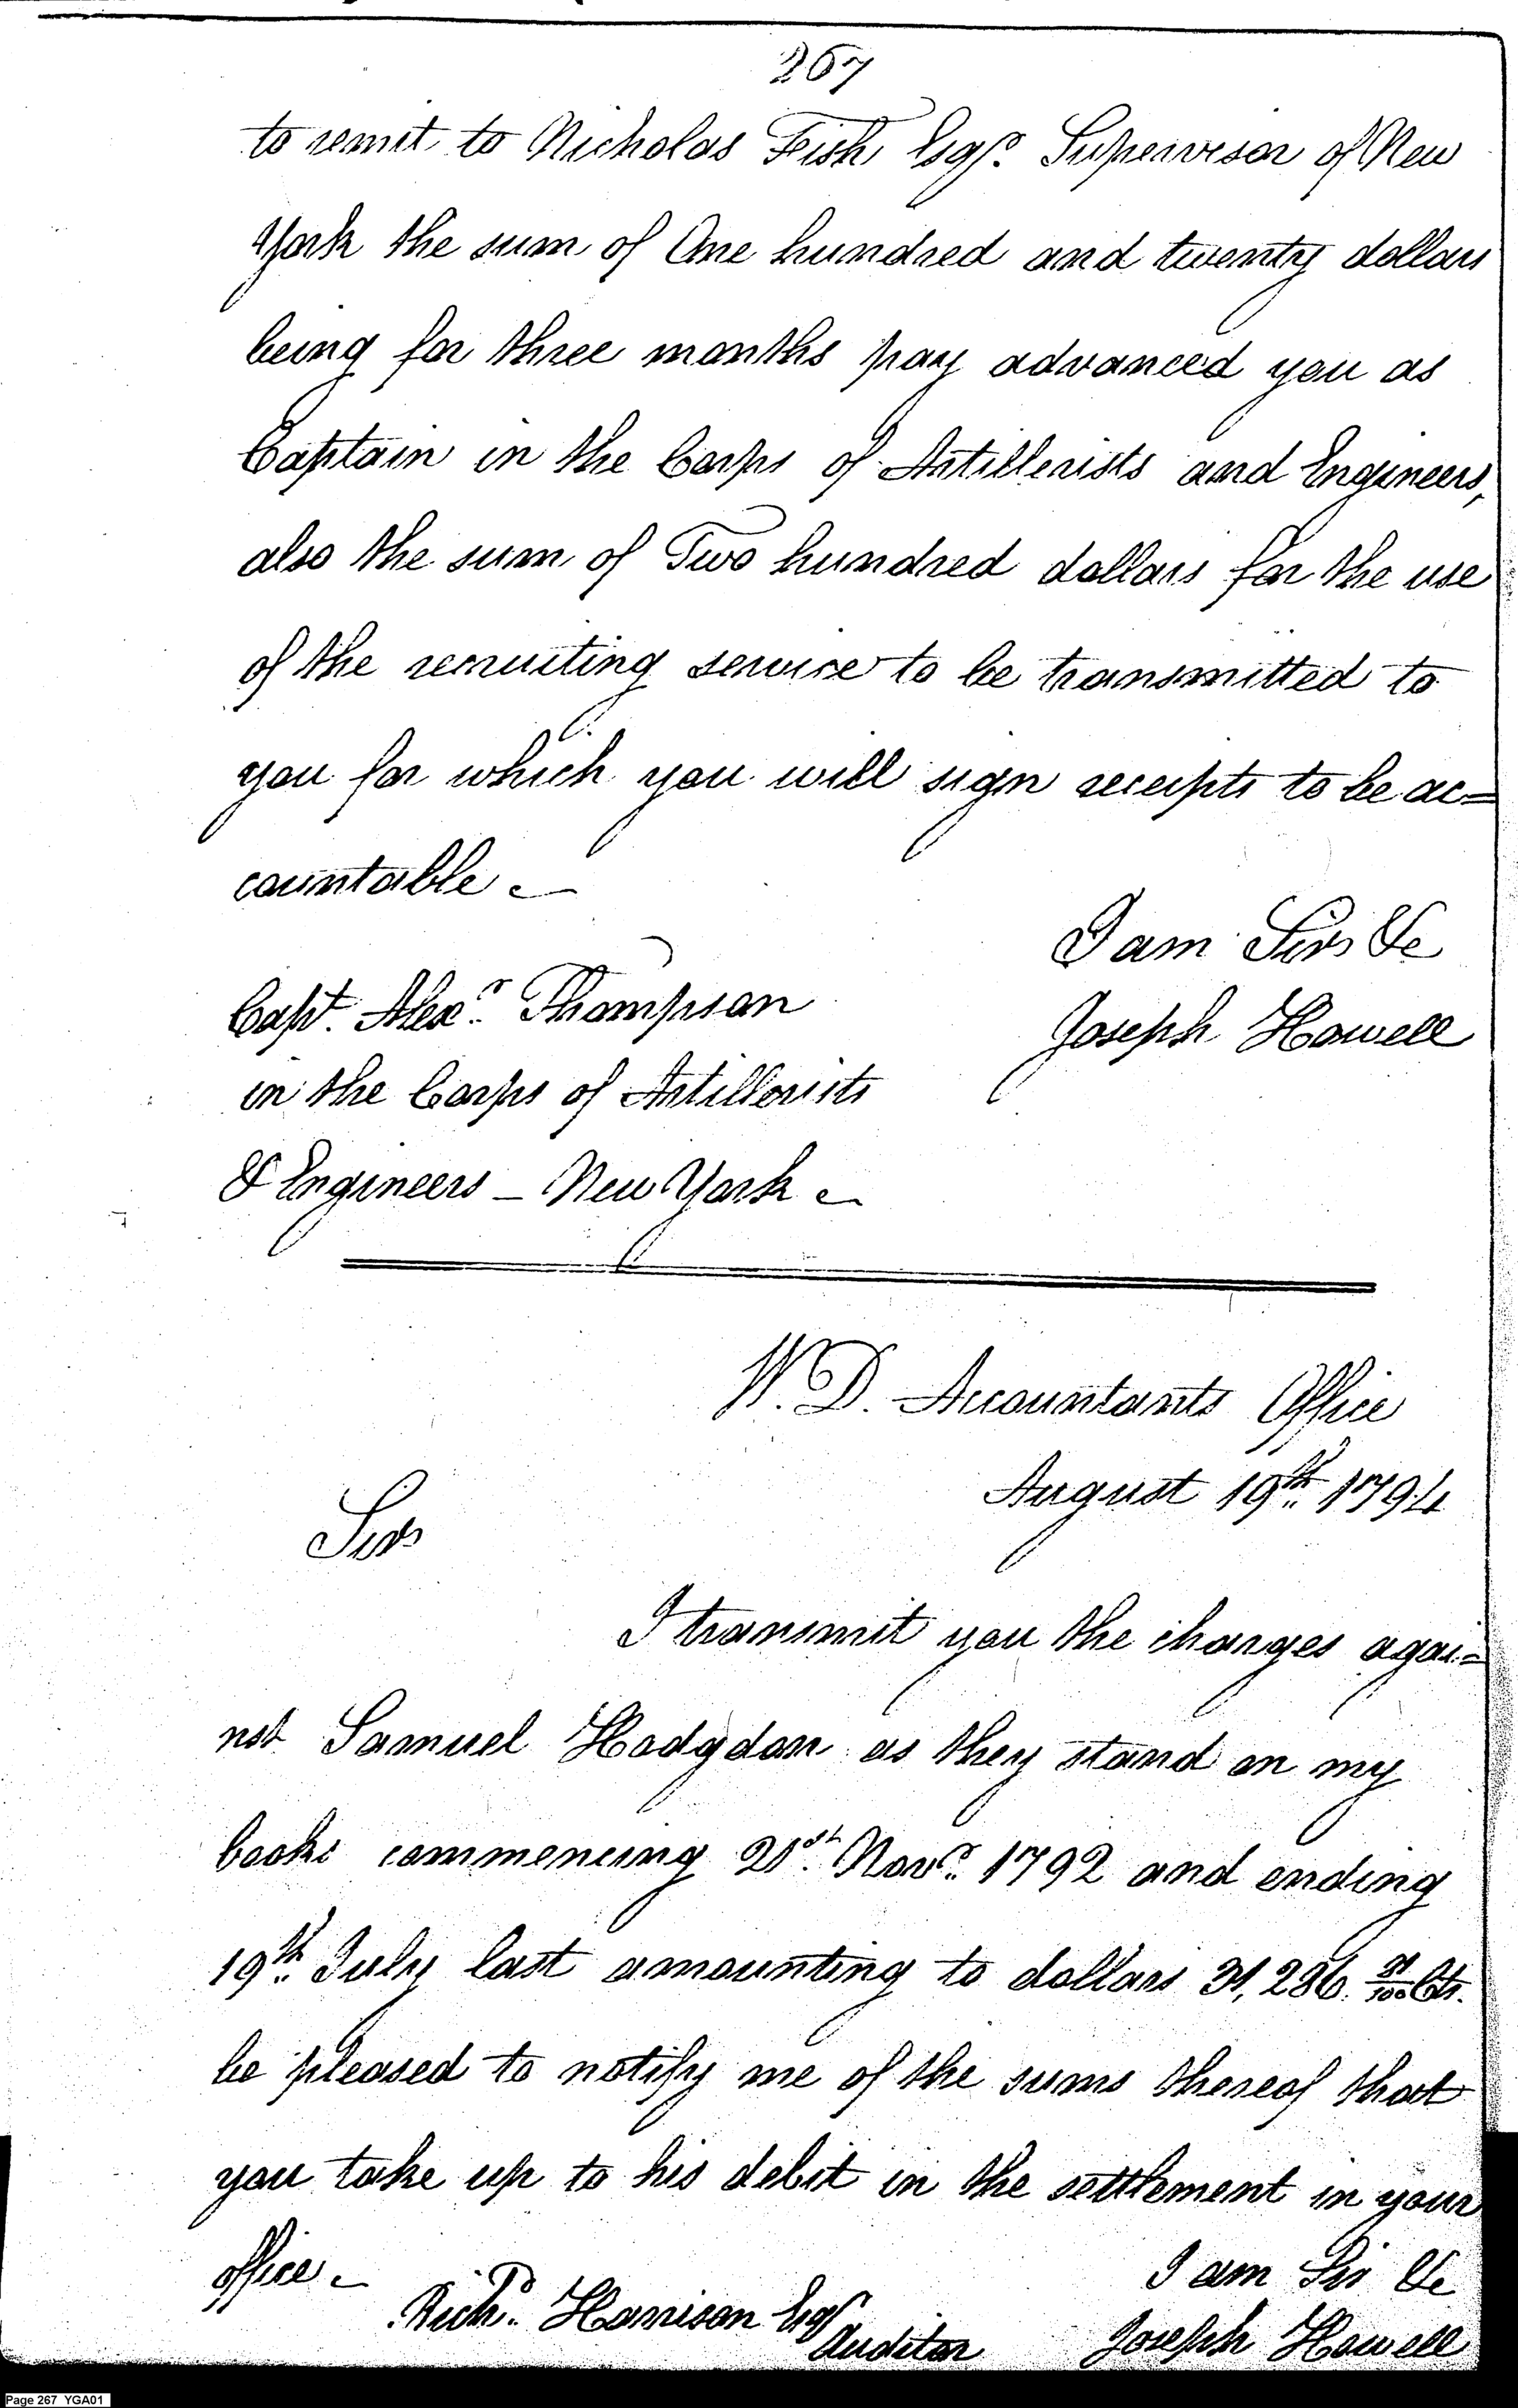 267
to remit to Nicholas Fish Esqr. Supervisor of New
York the sum of One hundred and twenty dollars
being for three months pay advanced you as
Captain in the Corps of Artillerists and Engineers,
also the sum of Two hundred dollars for the use
of the recruiting service to be transmitted to
you for which you will sign receipts to be ac=
countable.
I am Sir &c
Capt. Alexr. Thompson
Joseph Howell
in the Corps of Artillerists
& Engineers – New York
W. D. Accountants Office
August 19th. 1794
Sir
I transmit you the charges agai=
nst Samuel Hodgdon as they stand on my
books commencing 21st. Novr. 1792 and ending
19th. July last amounting to dollars 31,286. /100 Cts.
be pleased to notify me of the sums thereof that
you take up to his debit in the settlement in your
office.
I am Sir &c
Richd. Harrison Esqr
Auditor
Joseph Howell
Page 267 YGA01